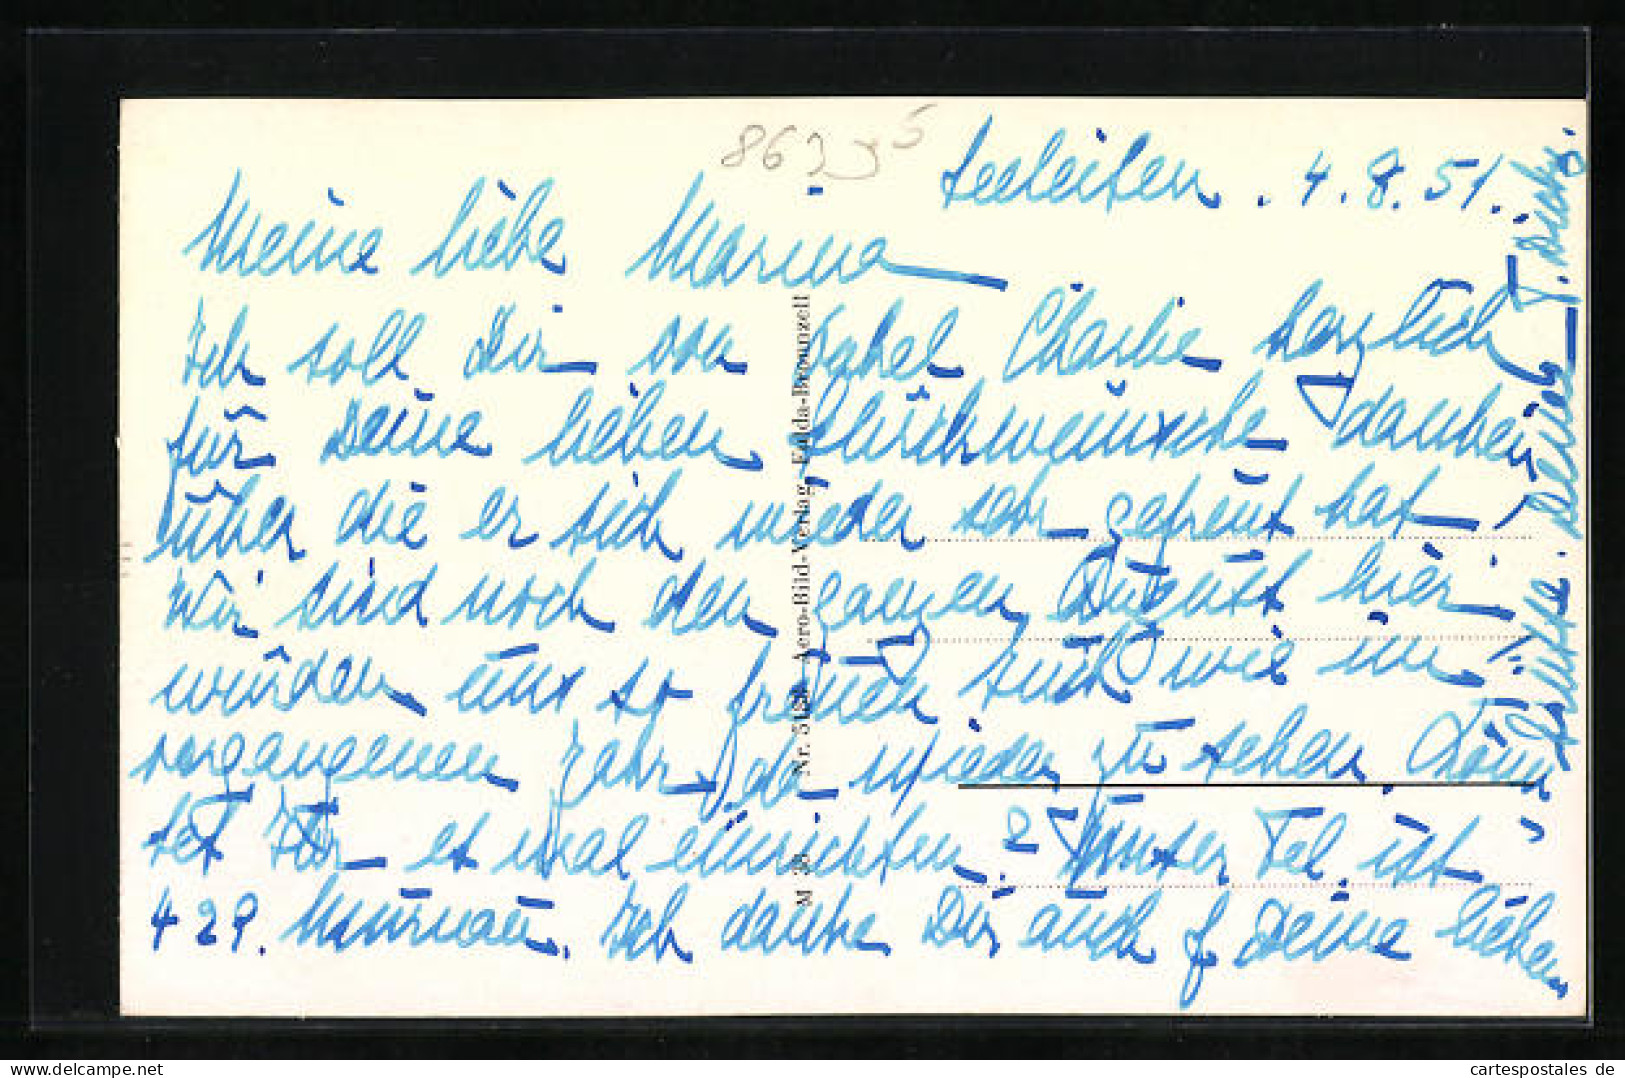 Seeleiten . 4.8.51.
Meine liebe Marina
Ich soll Dir von Charlie herzlich
für Deine lieben Glückwünsche danken
über die er sich wieder sehr gefreut hat,
Wir sind noch den ganzen August hier
würden uns so freuen Euch wie im
vergangenen Jahr da wieder zu sehen. Könn
tet Ihr es mal einrichten? Unser Tel. ist
429. Murnau. Ich danke Dir auch f Deine lieben
Deine
M 38 Nr. 5188 Aero-Bild-Verlag Fulda-Bronnzell
cartespostales de